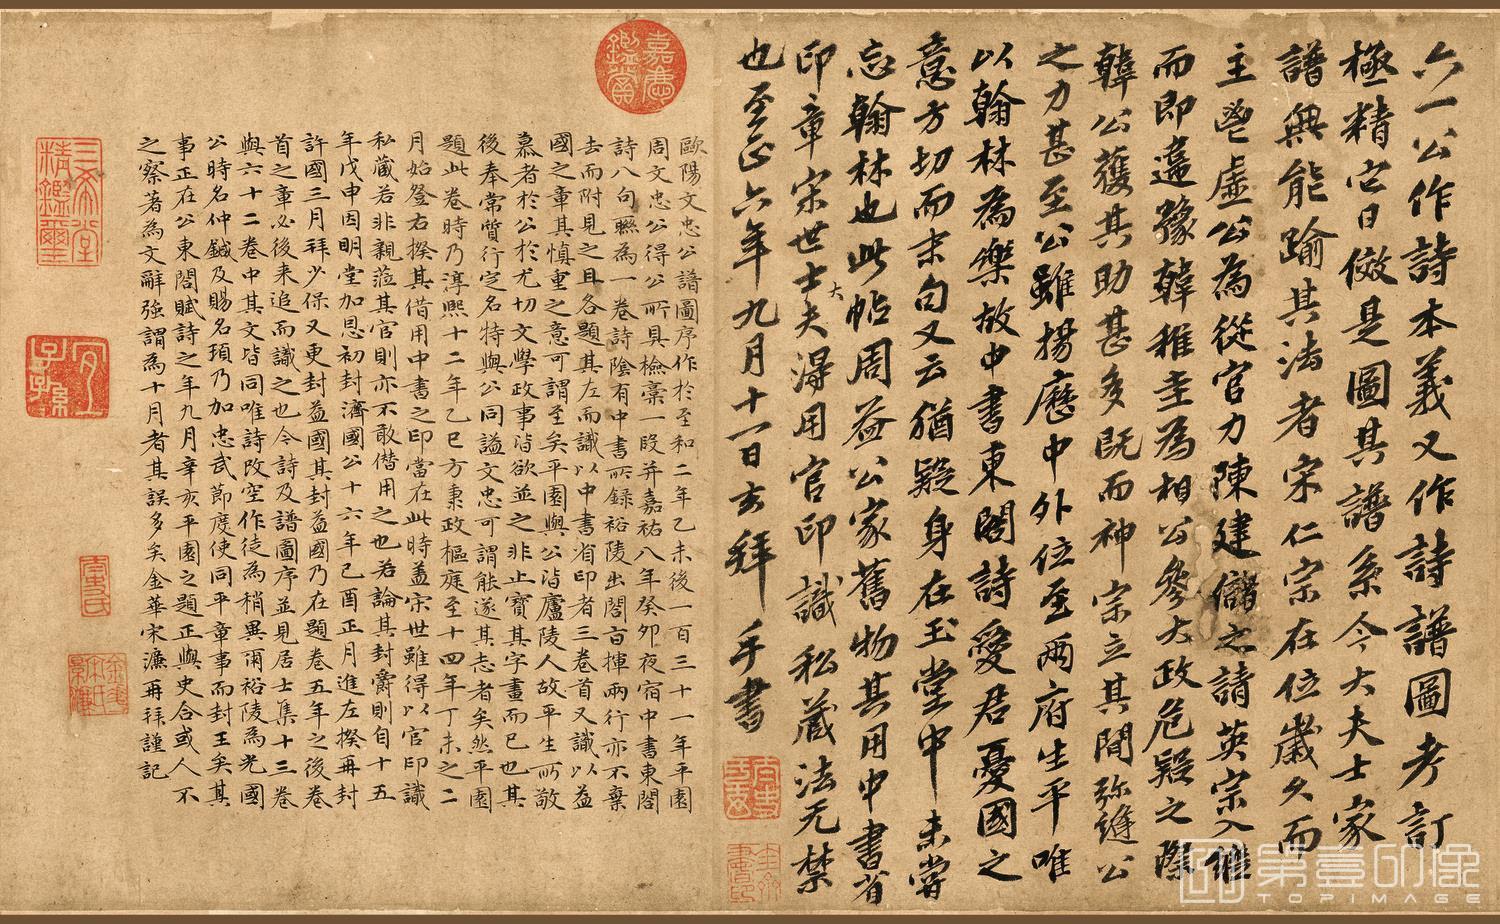 六一公作詩本義又作詩譜圖考訂
極精它日倣是圖其譜系今大夫士家
譜無能踰其法者宋仁宗在位歲久而
主鬯虛公為從官力陳建儲之請英宗入繼
而即違豫韓稚圭為相公參大政危疑之際
韓公獲其助甚多既而神宗立其間弥縫公
之力甚至公雖揚歷中外位至兩府生平唯
以翰林為樂故中書東閣詩愛君憂國之
意方切而末句又云猶疑身在玉堂中未嘗
忘翰林也此帖周益公家舊物其用中書省
印章宋世士大夫得用官印識私藏法无禁
也至正六年九月十一日玄拜手書
歐陽文忠公譜圖序作於至和二年乙未後一百三十一年平園
周文忠公得公所具檢槀一段并嘉祐八年癸卯夜宿中書東閣
詩八句聮為一卷詩陰有中書所録裕陵出閤㫖揮兩行亦不棄
去而附見之且各題其左而識以中書省印者三卷首又識以益
國之章其慎重之意可謂至矣平園與公皆廬陵人故平生所敬
慕者於公於尤切文學政事皆欲並之非止寶其字畫而已也其
後奉常質行定名特與公同謚文忠可謂能遂其志者矣然平園
題此卷時乃淳熙十二年乙巳方秉政樞庭至十四年丁未之二
月始登右揆其借用中書之印當在此時蓋宋世雖得以官印識
私藏若非親蒞其官則亦不敢僭用之也若論其封爵則自十五
年戊申因明堂加恩初封濟國公十六年己酉正月進左揆再封
許國三月拜少保又更封益國其封益國乃在題卷五年之後卷
首之章必後来追而識之也今詩及譜圖序並見居士集十三卷
與六十二卷中其文皆同唯詩改空作徒為稍異爾裕陵為光國
公時名仲鍼及賜名頊乃加忠武節度使同平章事而封王矣其
事正在公東閣賦詩之年九月辛亥平園之題正與史合或人不
之察著為文辭強謂為十月者其誤多矣金華宋濂再拜謹記
嘉慶鑑賞
三希堂精鑑璽
宜子孫
第壹印像
TOPIMAGE